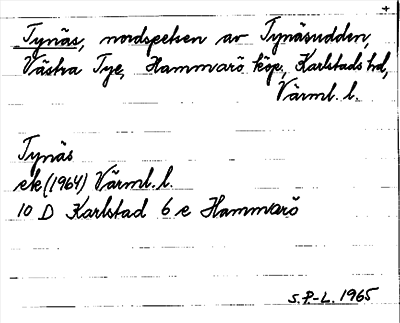 +
Tynäs, nordspetsen av Tynäsudden,
Västra Tye, Hammarö köp, Karlstads hd,
Värml. l.
Tynäs
ek (1964) Värml. l.
10 D Karlstad 6 e Hammarö
S.P.-L. 1965